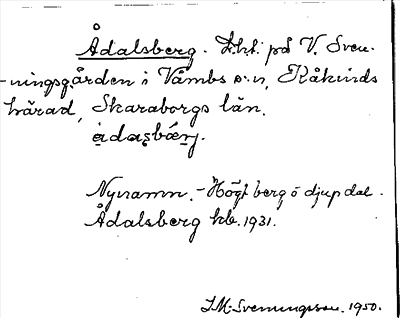 Ådalsberg. Lht. på V. Sven-
-ningsgården i Våmbs s:n, Kåkinds
härad, Skaraborgs län.
ådasbærj.
Nynamn. - Högt berg o djup dal.
Ådalsberg hb. 1931.
I.M. Svenungsson. 1950.